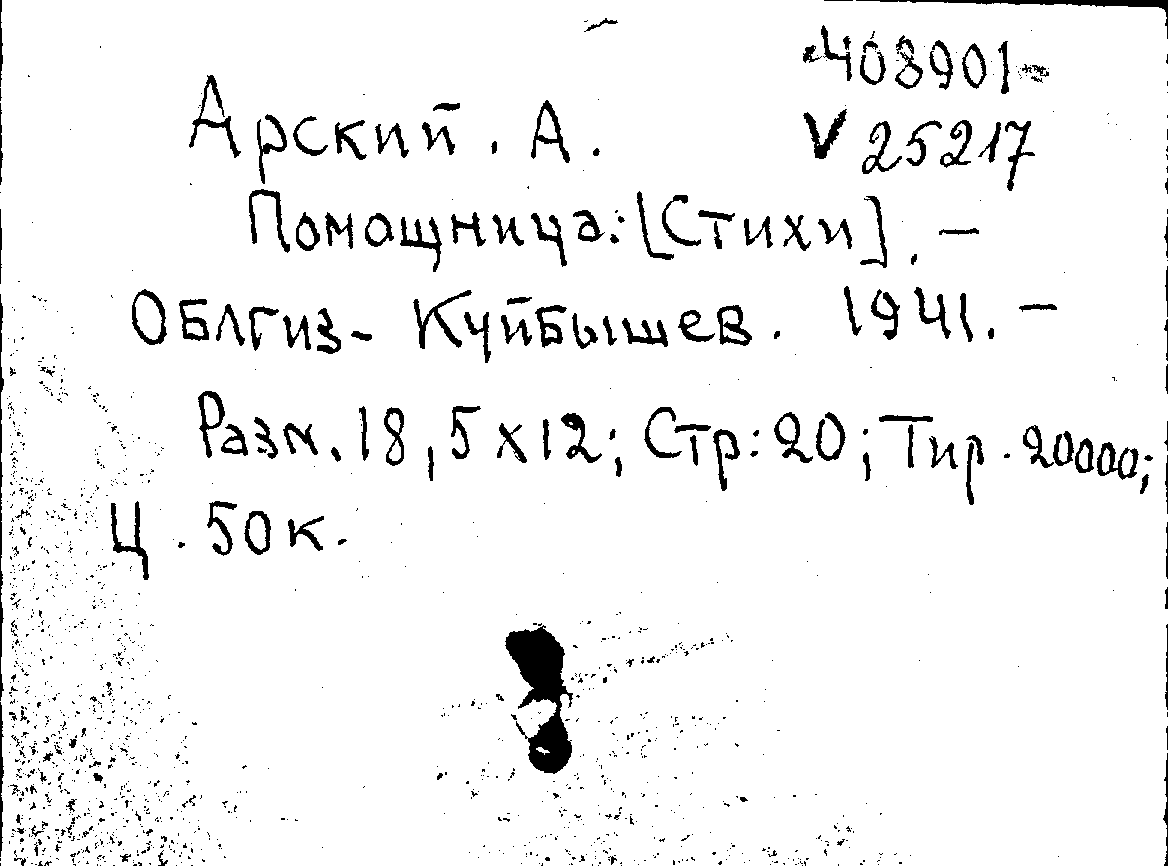 408901-
Арский. А.
V 25217
Помощница: [Стихи]. —
Облгиз- Куйбышев. 1941. —
Разм. 18,5x12; Стр: 20; Тир. 20000;
Ц. 50к.